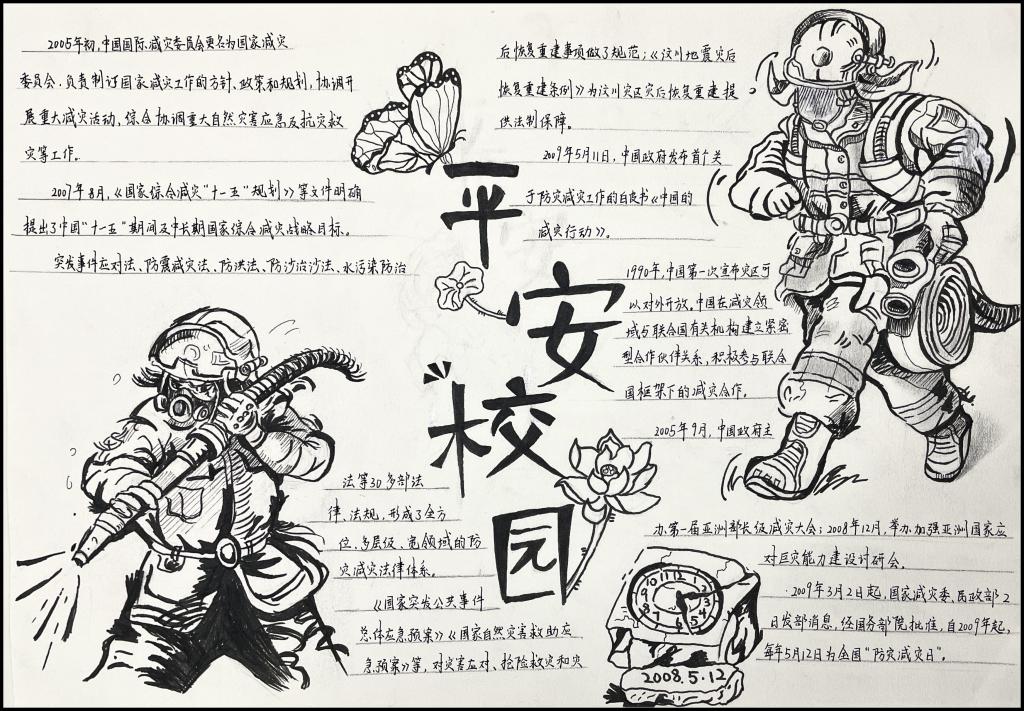 2005年初,中国国际减灾委员会更名为国家减灾
委员会,负责制订国家减灾工作的方针、政策和规划,协调开
展重大减灾活动,综合协调重大自然灾害应急及抗灾救
灾等工作。
2007年8月,《国家综合减灾"十一五"规划》等文件明确
提出了中国"十一五"期间及中长期国家综合减灾战略目标。
突发事件应对法、防震减灾法、防洪法、防沙治沙法、水污染防治
法等30多部法
律、法规,形成了全方
位、多层级、宽领域的防
灾减灾法律体系。
《国家突发公共事件
总体应急预案》《国家自然灾害救助应
急预案》等,对灾害应对、抢险救灾和灾
平
安
校
园
后恢复重建事项做了规范;《汶川地震灾后
恢复重建条例》为汶川灾区灾后恢复重建提
供法制保障。
2009年5月11日,中国政府发布首个关
于防灾减灾工作的白皮书《中国的
减灾行动》。
1990年,中国第一次宣布灾区可
以对外开放。中国在减灾领
域与联合国有关机构建立紧密
型合作伙伴关系,积极参与联合
国框架下的减灾合作。
2005年9月,中国政府主
办第一届亚洲部长级减灾大会;2008年12月,举办加强亚洲国家应
对巨灾能力建设讨研会。
2009年3月2日起,国家减灾委、民政部2
日发部消息,经国务部院批准,自2009年起,
每年5月12日为全国"防灾减灾日"。
10 11 12 1 2 3 4 5 6 7 8 9
2008.5.12